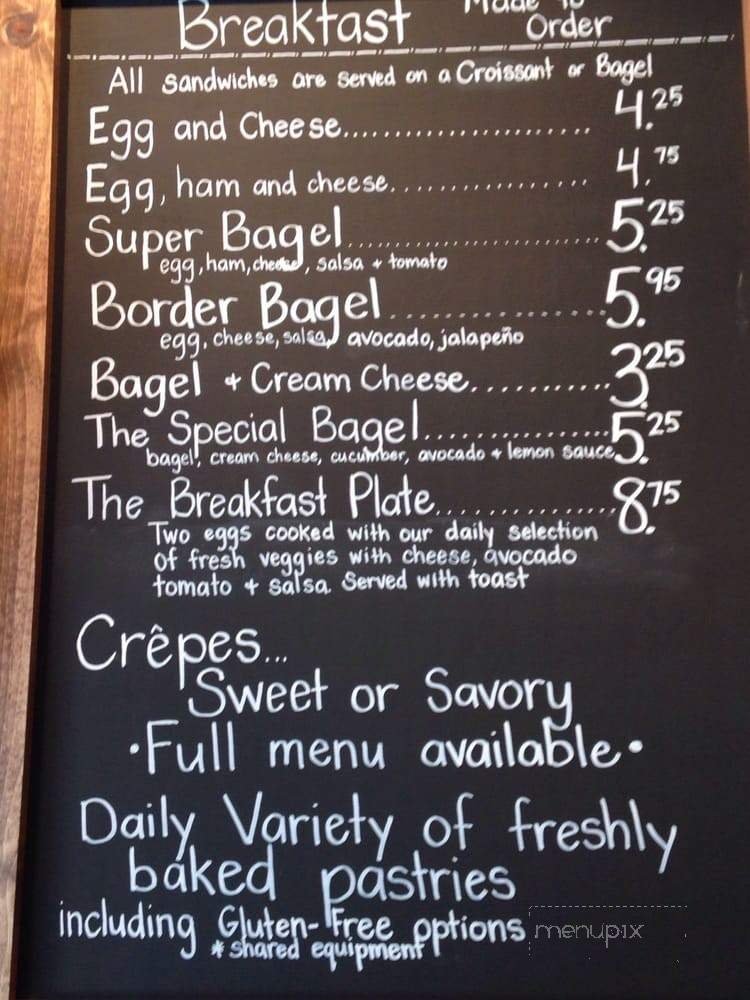 Breakfast Made to
Order
All sandwiches are served on a Croissant or Bagel
Egg and Cheese........................ 4.25
Egg, ham and cheese.................. 4.75
Super Bagel........................... 5.25
egg, ham, cheese, salsa + tomato
Border Bagel................ 5.95
egg, cheese, salsa, avocado, jalapeño
Bagel + Cream Cheese........... 3.25
The Special Bagel................ 5.25
bagel, cream cheese, cucumber, avocado + lemon sauce
The Breakfast Plate............... 8.75
Two eggs cooked with our daily selection
of fresh veggies with cheese, avocado
tomato + salsa. Served with toast
Crêpes...
Sweet or Savory
•Full menu available•
Daily Variety of freshly
baked pastries
including Gluten-Free options
*shared equipment
menupix